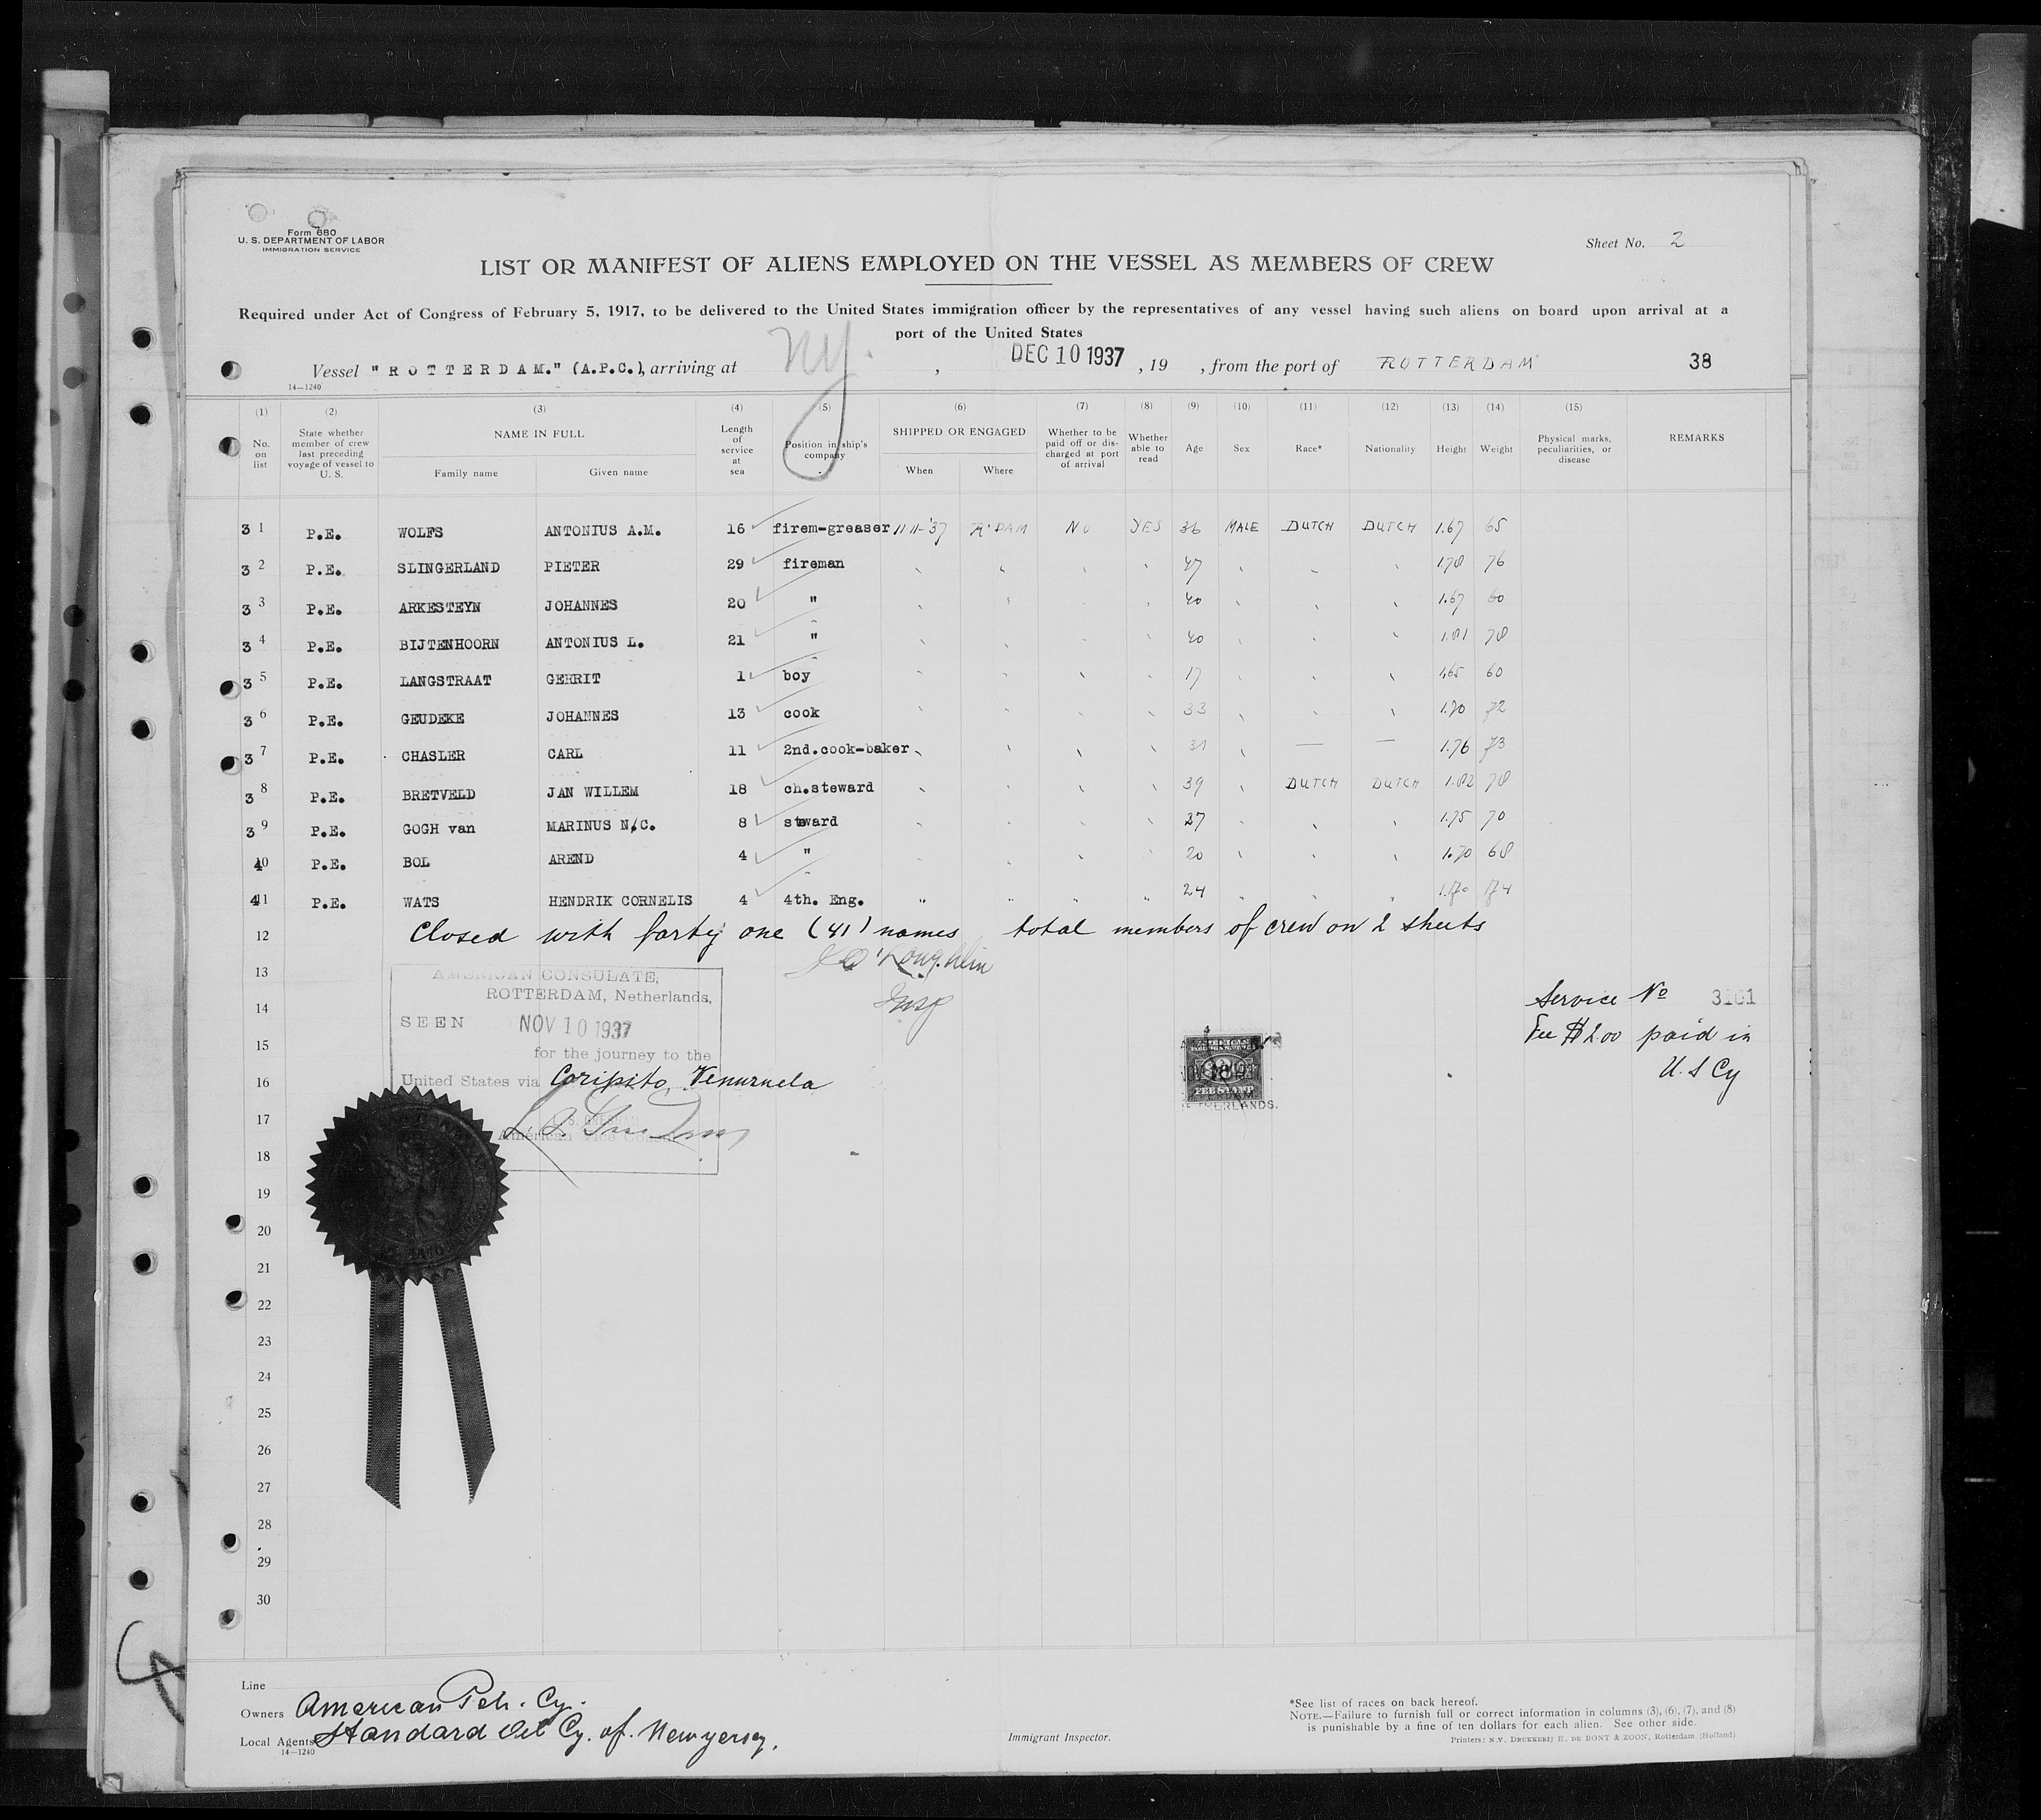 Form 680
U. S. DEPARTMENT OF LABOR
IMMIGRATION SERVICE
Sheet No. 2
LIST OR MANIFEST OF ALIENS EMPLOYED ON THE VESSEL AS MEMBERS OF CREW
Required under Act of Congress of February 5, 1917, to be delivered to the United States immigration officer by the representatives of any vessel having such aliens on board upon arrival at a
port of the United States
Vessel "ROTTERDAM." (A.P.C.), arriving at NY. , DEC 10 1937 , 19 , from the port of ROTTERDAM 38
14—1240
(1) (2) (3) (4) (5) (6) (7) (8) (9) (10) (11) (12) (13) (14) (15)
No. on list
State whether member of crew last preceding voyage of vessel to U. S.
NAME IN FULL
Family name Given name
Length of service at sea
Position in ship's company
SHIPPED OR ENGAGED
When Where
Whether to be paid off or discharged at port of arrival
Whether able to read
Age Sex Race* Nationality Height Weight
Physical marks, peculiarities, or disease
REMARKS
3 1 P.E. WOLFS ANTONIUS A.M. 16 firem-greaser 11-11-'37 R'DAM NO YES 36 MALE DUTCH DUTCH 1.67 65
3 2 P.E. SLINGERLAND PIETER 29 fireman 47 1.78 76
3 3 P.E. ARKESTEYN JOHANNES 20 " 40 1.67 60
3 4 P.E. BIJTENHOORN ANTONIUS L. 21 " 40 1.81 78
3 5 P.E. LANGSTRAAT GERRIT 1 boy 17 1.65 60
3 6 P.E. GEUDEKE JOHANNES 13 cook 33 1.70 72
3 7 P.E. CHASLER CARL 11 2nd.cook-baker 31 — — 1.76 73
3 8 P.E. BRETVELD JAN WILLEM 18 ch.steward 39 DUTCH DUTCH 1.82 78
3 9 P.E. GOGH van MARINUS N.C. 8 steward 27 1.75 70
4 10 P.E. BOL AREND 4 " 20 1.70 68
4 11 P.E. WATS HENDRIK CORNELIS 4 4th. Eng. " " " " 24 1.70 74
12 Closed with forty one (41) names total members of crew on 2 sheets
13
AMERICAN CONSULATE,
ROTTERDAM, Netherlands,
14 Insp
Service No 3101
SEEN NOV 10 1937
15 for the journey to the
Fee $2.00 paid in
16 United States via Caripito, Venezuela
U. S Cy
FEE STAMP
17
American Vice Consul
18
19
20
21
22
23
24
25
26
27
28
29
30
Line
Owners American Petr. Cy.
Local Agents Standard Oil Cy. of New yersey.
14—1240
Immigrant Inspector.
*See list of races on back hereof.
NOTE.—Failure to furnish full or correct information in columns (3), (6), (7), and (8)
is punishable by a fine of ten dollars for each alien. See other side.
Printers: N.V. DRUKKERIJ H. DE BONT & ZOON, Rotterdam (Holland)